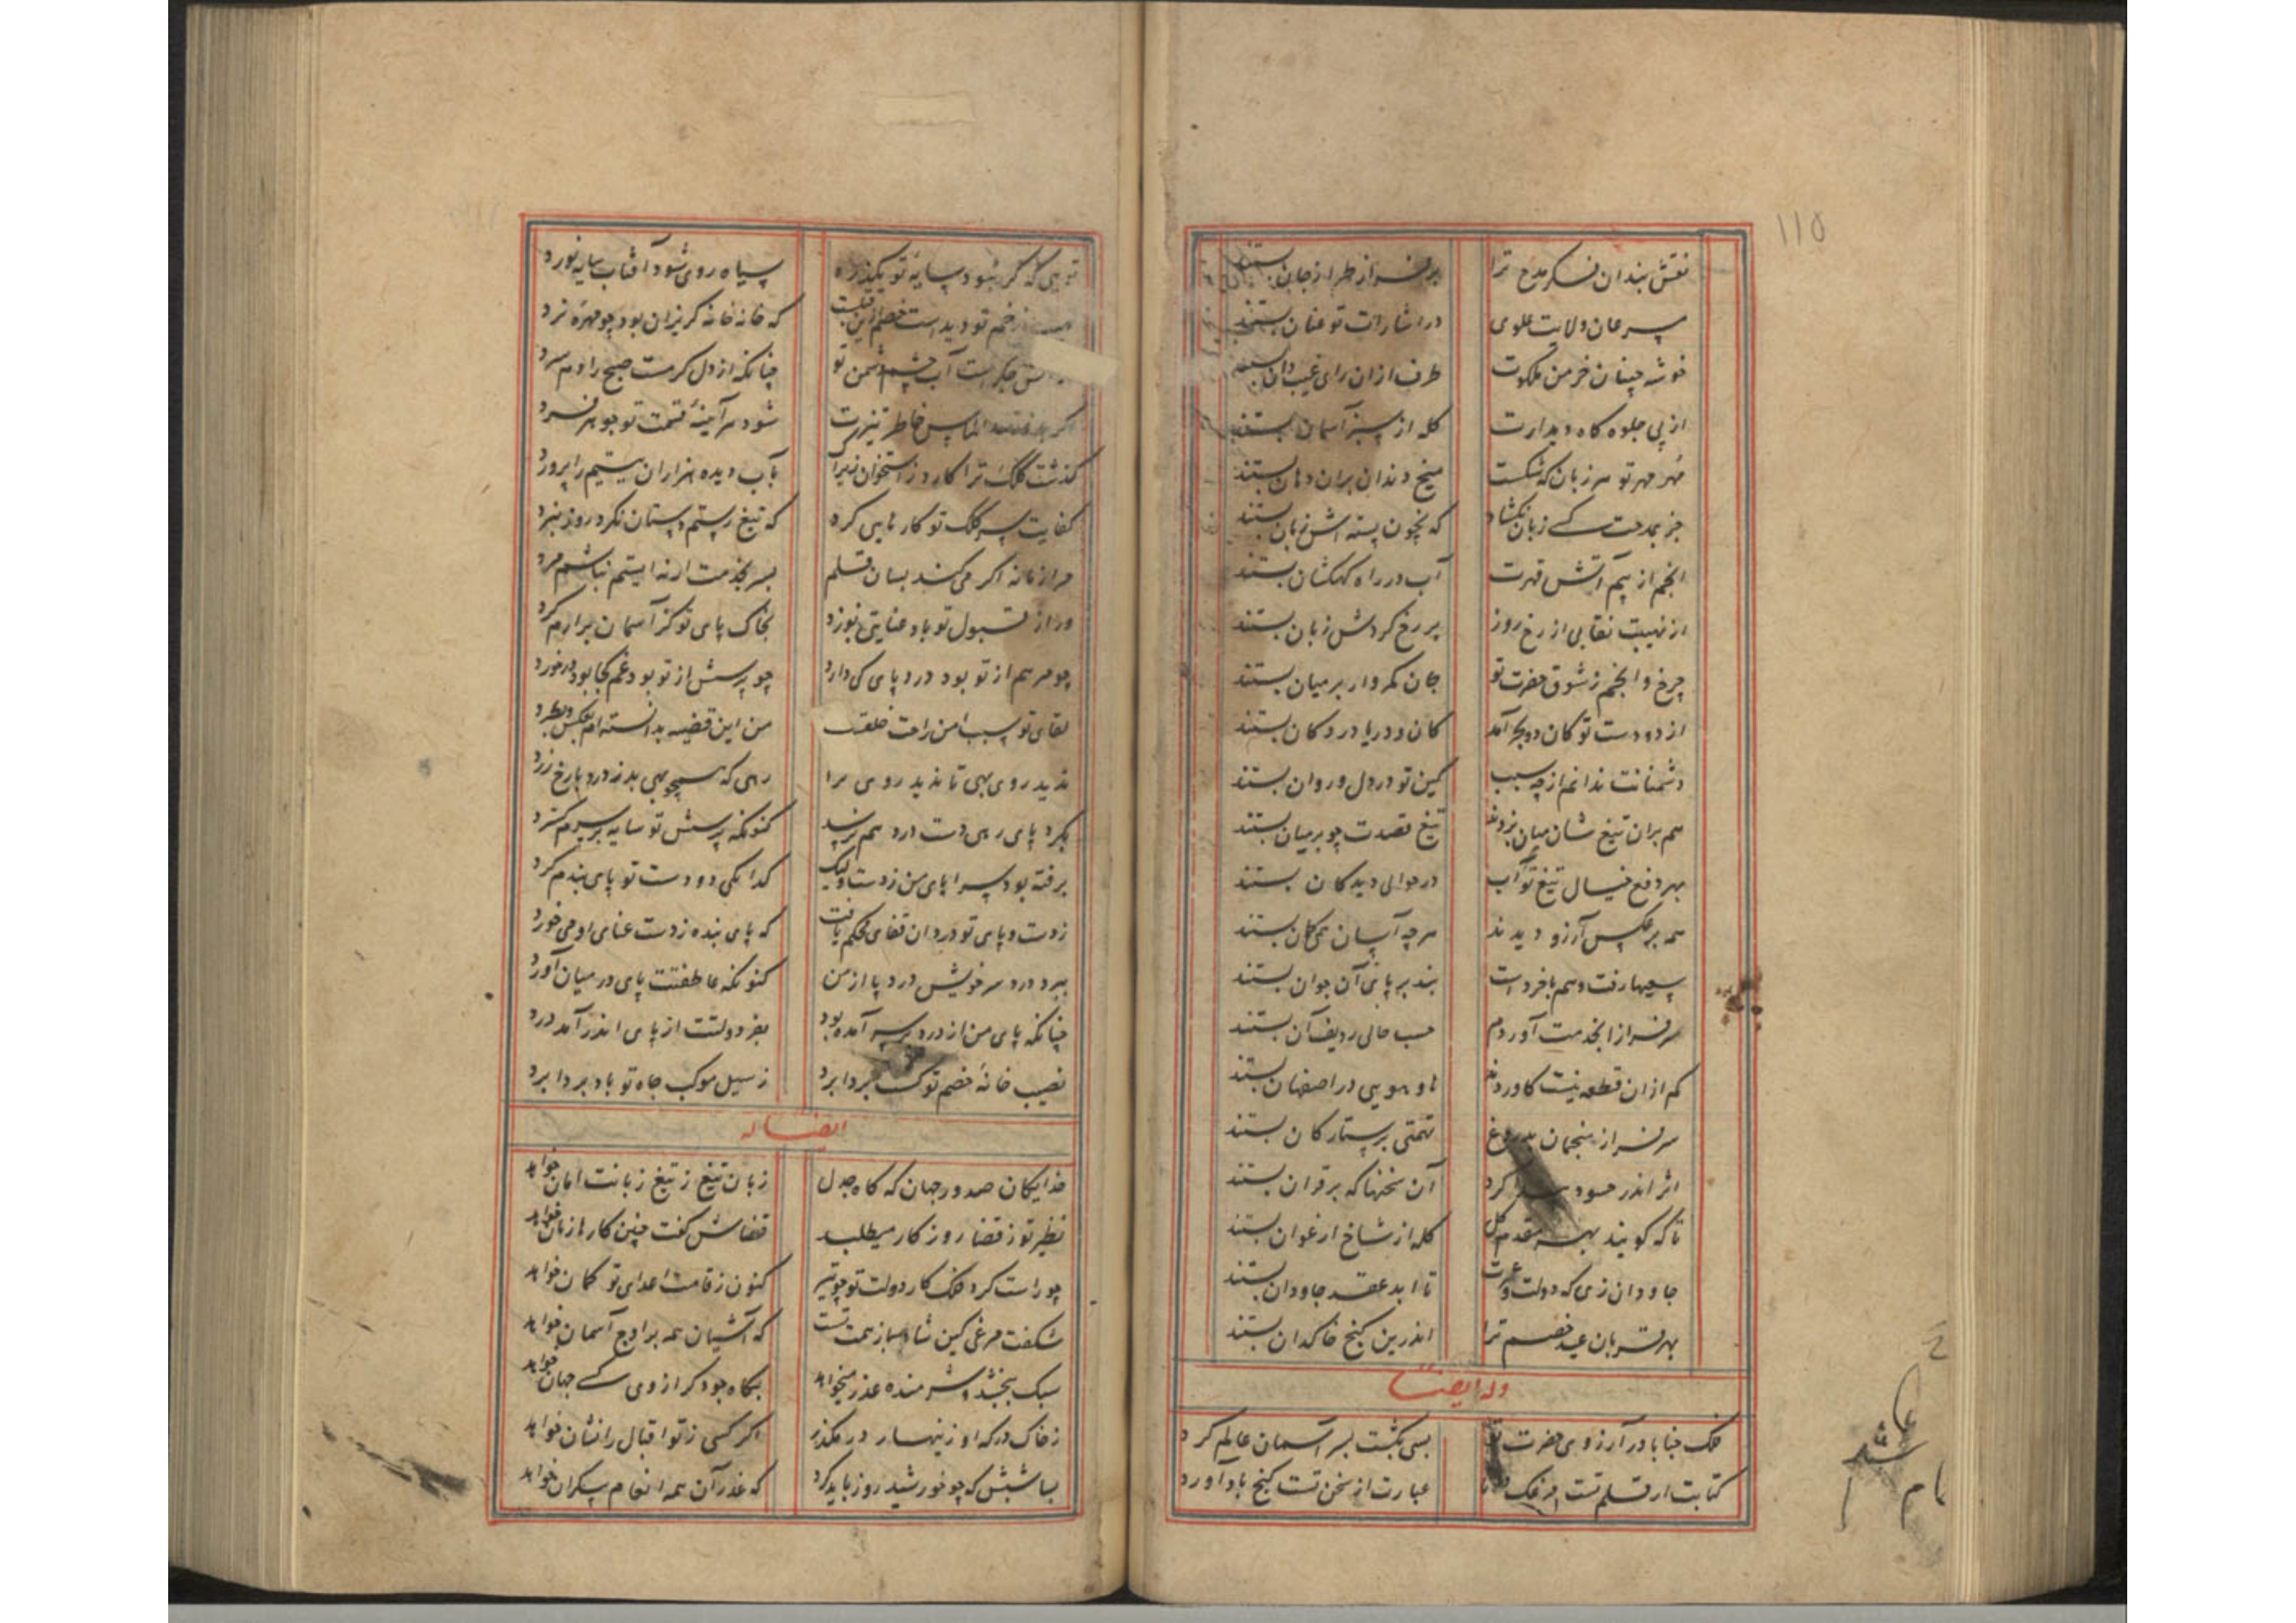 ١١٥
نقش بندان فکر مدح ترا بر سر از طراز جان بستند
سرعان ولایت علوی در اشارات تو عنان بستند
خوشه چینان خرمن ملکوت طرف ازان رای غیب دان بستند
از پی جلوه کاه دیدارت کله از سبز آسمان بستند
مهر مهر تو هر زبان که شکست میخ دندان بران دهان بستند
جز بمدحت کسی زبان نکشاد که نچون پسته اش زبان بستند
انجم از بیم آتش قهرت آب در راه کهکشان بستند
از نهیبت نقابی از رخ روز بر رخ کردش زبان بستند
چرخ و انجم ز شوق حضرت تو جان کمروار بر میان بستند
از دو دست تو کان و بحر آمد کان و دریا در دکان بستند
دشمنانت ندانم از چه سبب کین تو در دل و روان بستند
هم بران تیغ شان میان بزدند تیغ قصدت چو بر میان بستند
بهر دفع خیال تیغ تو آب در حوالی دیدکان بستند
همه بر عکس آرزو دیدند هرچه آسان همی کان بستند
سعیها رفت و هم باخر دست بند بر پای آن جوان بستند
سرفرازا بخدمت آوردم حسب حالی ردیف آن بستند
کم ازان قطعه نیست کاوردند ها و هویی در اصفهان بستند
سرفراز منجمان بدروغ تهمتی بر ستارکان بستند
اثر اندر حسود کرد آن سخنها که بر قران بستند
تا که کویند بهر مقدم کل کله از شاخ ارغوان بستند
جاودان زی که دولت و عزت تا ابد عقد جاودان بستند
بهر قربان عید خصم ترا اندرین کنج خاکدان بستند
وله ایضا
فلک جنابا در آرزوی حضرت تو بسی بکشت بسر آسمان عالم کرد
کتابت از قلم تست عبارت از سخن تست کنج باد آورد
تویی که کر شود سایه تو یکذره سیاه روی شود آفتاب سایه نورد
زخم تو دیدست خصم ازین قلبت که خانه خانه کریزان بود چو مهره نرد
آب چشم دشمن تو چنانکه از دل کرمست صبح را دم سرد
الماس خاطر تیزت شود هر آینه قسمت تو جوهر فرد
کذشت کلک ترا کار از استخوان زیرا بآب دیده هزاران یتیم را پرورد
کفایت سر کلک تو کارهایی کرد که تیغ رستم دستان نکرد روز نبرد
مرا زمانه اکر می کند بسان قلم بسر بخدمت ار نه ایستم نباشم مرد
ور از قبول تو باد عنایتی نوزد بخاک پای تو کز آسمان برارم کرد
چو مرهم از تو بود درد پای کی دارد چو پرسش از تو بود غم کجا بود درخورد
لقای تو سبب امن راحت خلقت من این قضیه بدانسته ام بعکس و بطرد
ندید روی بهی تا ندید روی مرا رهی که همچو بهی بد ز درد با رخ زرد
بکرد پای رهی دست درد هم نرسد کنونکه پرسش تو سایه بر سرم کسترد
برفته بود سراپای من ز دست ولیک کدایکی دو دست تو پای بندم کرد
ز دست و پای تو در دان قضای محکم یافت که پای بنده ز دست عنای او می خورد
ببرد درد سر خویش درد پا از من کنونکه عاطفتت پای در میان آورد
چنانکه پای من از درد بر سر آمده بود بفر دولتت از پای اندر آمد درد
نصیب خانه خصم تو کشت بردابرد ز سیل موکب جاه تو باد بردابرد
ایضا له
خدایکان صدور جهان که کاه جدل زبان تیغ ز تیغ زبانت امان خواهد
نظیر تو ز قضا روزکار میطلبد قضاش کفت چنین کارها زمان خواهد
چو راست کرد فلک کار دولت تو چو تیر کنون ز قامت اعدای تو کمان خواهد
شکفت مرغی کین شاهباز همت تست که آشیان همه بر اوج آسمان خواهد
سبک ببخشد و شرمنده عذر میخواهد بکاه جود کر از وی کسی جهان خواهد
ز خاک درکه او زینهار در مکذر اکر کسی ز تو اقبال را نشان خواهد
بسا شبش که چو خورشید روز باید کرد که عذر آن همه انعام بیکران خواهد